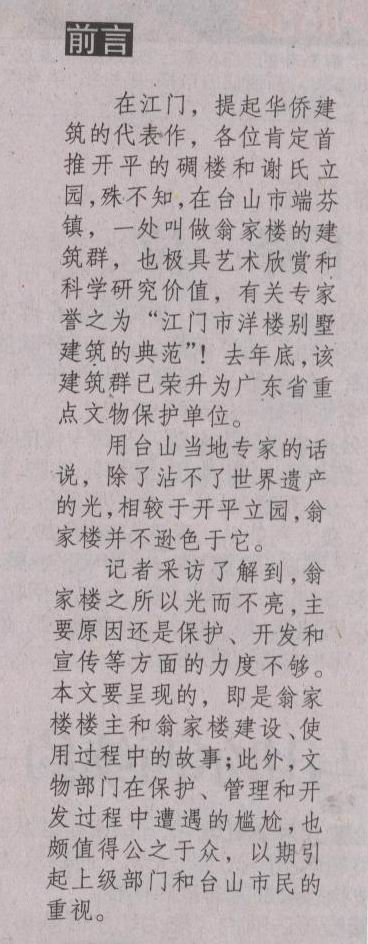 前言
在江门，提起华侨建
筑的代表作，各位肯定首
推开平的碉楼和谢氏立
园，殊不知，在台山市端芬
镇，一处叫做翁家楼的建
筑群，也极具艺术欣赏和
科学研究价值，有关专家
誉之为“江门市洋楼别墅
建筑的典范”！去年底，该
建筑群已荣升为广东省重
点文物保护单位。
用台山当地专家的话
说，除了沾不了世界遗产
的光，相较于开平立园，翁
家楼并不逊色于它。
记者采访了解到，翁
家楼之所以光而不亮，主
要原因还是保护、开发和
宣传等方面的力度不够。
本文要呈现的，即是翁家
楼楼主和翁家楼建设、使
用过程中的故事；此外，文
物部门在保护、管理和开
发过程中遭遇的尴尬，也
颇值得公之于众，以期引
起上级部门和台山市民的
重视。